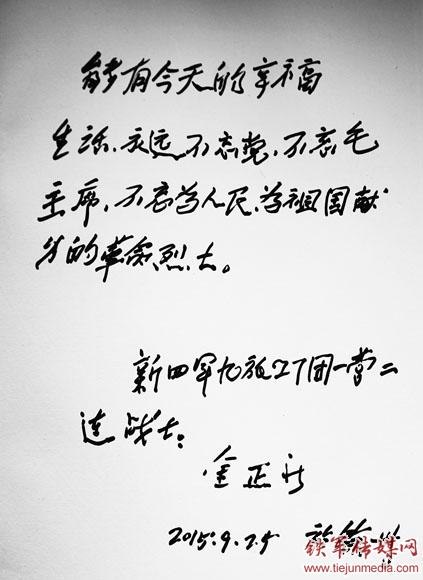 能有今天的幸福
生活、永远不忘党,不忘毛
主席,不忘为人民、为祖国献
身的革命烈士。
新四军九旅27团一营二
连战士:
金正
2015.9.25
铁军传媒网
www.tiejunmedia.com